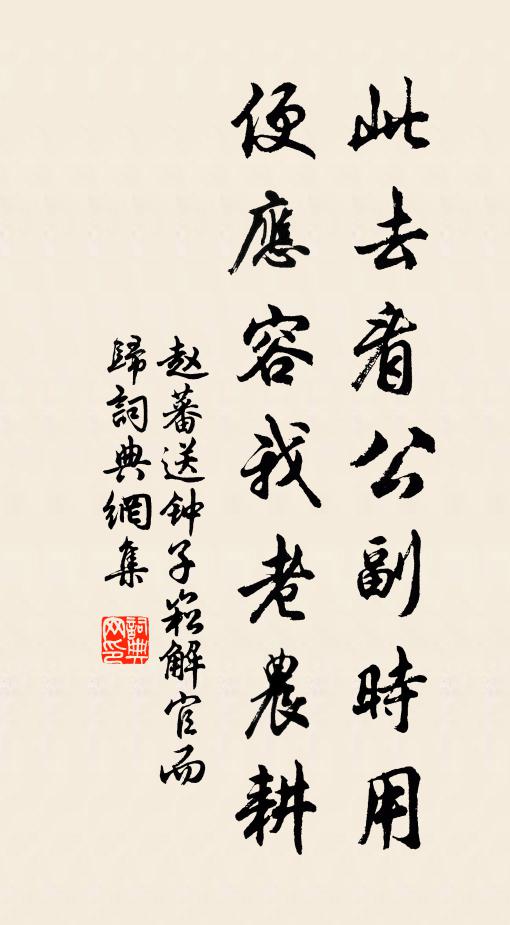 此去看公副時用
便應容我老農耕
赵蕃送钟子崧解官而
歸詞典網集
詞典
网印